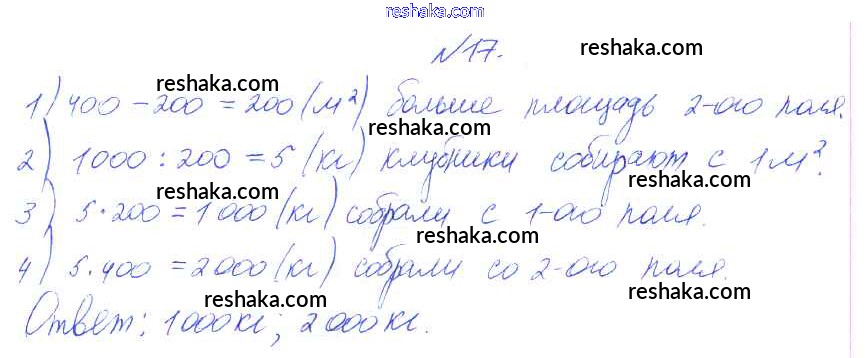 reshaka.com
№17. reshaka.com
reshaka.com
1) 400 - 200 = 200 (м²) больше площадь 2-ого поля.
reshaka.com
2) 1000 : 200 = 5 (кг) клубники собирают с 1 м².
reshaka.com
3) 5 · 200 = 1000 (кг) собрали с 1-ого поля.
reshaka.com
4) 5 · 400 = 2000 (кг) собрали со 2-ого поля.
reshaka.com reshaka.com
Ответ: 1000 кг; 2000 кг.